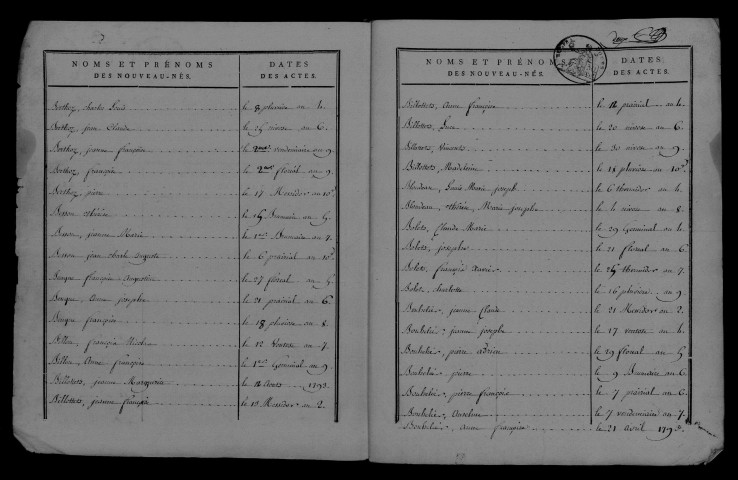 NOMS ET PRÉNOMS DES NOUVEAU-NÉS.
DATES DES ACTES.
Berthoz, charles Louis le 8 pluviose an 4.
Berthoz, jean Claude le 25 nivose an 6.
Berthoz, jeanne françoise vendemiaire an 9.
Berthoz, françois floréal an 9.
Berthoz, pierre le 17 Messidor an 10.
Besson thérèse le 15 Brumaire an 5.
Besson, jeanne Marie le 1er Brumaire an 7.
Besson jean charle auguste le 6 prairial an 10.
Beuque françois augustin le 27 floréal an 5
Beuque Anne josephe le 21 prairial an 6.
Beuque françoise le 18 pluviose an 8.
Billen, françois Nicolas le 12 Ventose an 7.
Billen, Anne françoise le 1er Germinal an 9
Billottets, jeanne Marguerite le Aouts 1793.
Billottets, jeanne françoise le 18 Messidor an 2.
NOMS ET PRÉNOMS DES NOUVEAU-NÉS.
DATES DES ACTES.
Billottets, Anne françoise le 12 prairial an 4.
Billottets, le 20 nivose an 6.
Billottets, Vincent le 30 nivose an 9.
Billottets, Madeleine le 18 pluviose an 10.
Blondeau, Louis Marie joseph le 6 thermidor an 4.
Blondeau, thérèse Marie josephe le 4 nivose an 8.
Bolots, Claude Marie le 29 Germinal an 4.
Bolots, josephe le 21 floréal an 6.
Bolots, françois Xavier le 25 thermidor an 7.
Bolot, charlotte le 16 pluviose an 9.
Bouhelié, jeanne Claude le 21 Messidor an 2.
Bouhelié, jeanne josephe le 17 ventose an 4.
Bouhelié, pierre adrien le 29 floréal an 5
Bouhelié, pierre le 9 Brumaire an 6.
Bouhelié, pierre françois le 7 prairial an 6
Bouhelié, Anselme le 7 vendemiaire an 7.
Bouhelié, Anne françoise le 21 avril 1793.